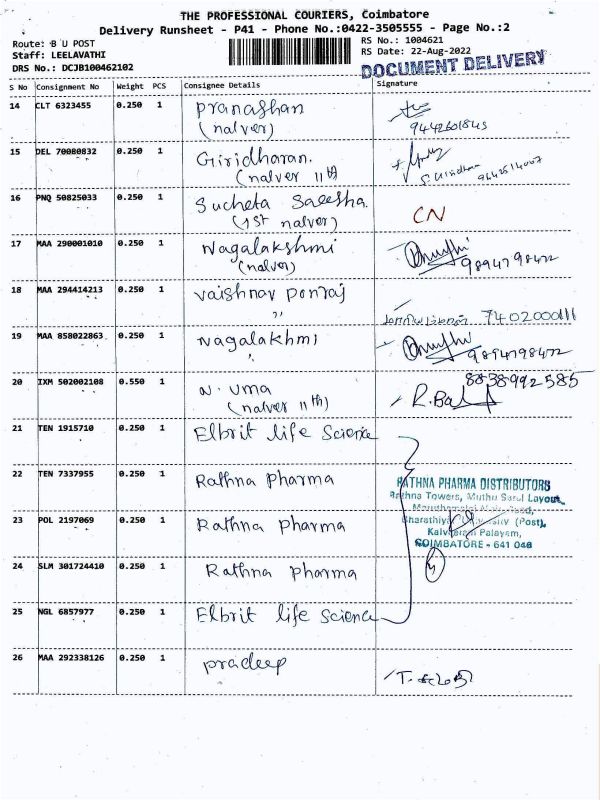 THE PROFESSIONAL COURIERS, Coimbatore
Delivery Runsheet - P41 - Phone No.:0422-3505555 - Page No.:2
Route: B U POST
Staff: LEELAVATHI
DRS No.: DCJB100462102
RS No.: 1004621
RS Date: 22-Aug-2022
DOCUMENT DELIVERY
S No Consignment No Weight PCS Consignee Details Signature
14 CLT 6323455 0.250 1 Pranashan
(nalver)
9442601845
15 DEL 70080832 0.250 1 Giridharan.
(nalver 11th)
16 PNQ 50825033 0.250 1 Sucheta Saeesha.
(1st nalver)
CN
17 MAA 290001010 0.250 1 Nagalakshmi
(nalver)
9894798472
18 MAA 294414213 0.250 1 Vaishnav Ponraj
"
7402000111
19 MAA 858022863 0.250 1 Nagalakhmi
"
9894798472
20 IXM 502002108 0.550 1 N. Uma
(nalver 11th)
8838992585
R.Bal
21 TEN 1915710 0.250 1 Elbrit life Science
22 TEN 7337955 0.250 1 Rathna Pharma
23 POL 2197069 0.250 1 Rathna Pharma
RATHNA PHARMA DISTRIBUTORS
Rathna Towers, Muthu Layout,
Bharathiyar University (Post),
Palayam,
COIMBATORE - 641 046
24 SLM 301724410 0.250 1 Rathna Pharma
25 NGL 6857977 0.250 1 Elbrit life Science
26 MAA 292338126 0.250 1 Pradeep